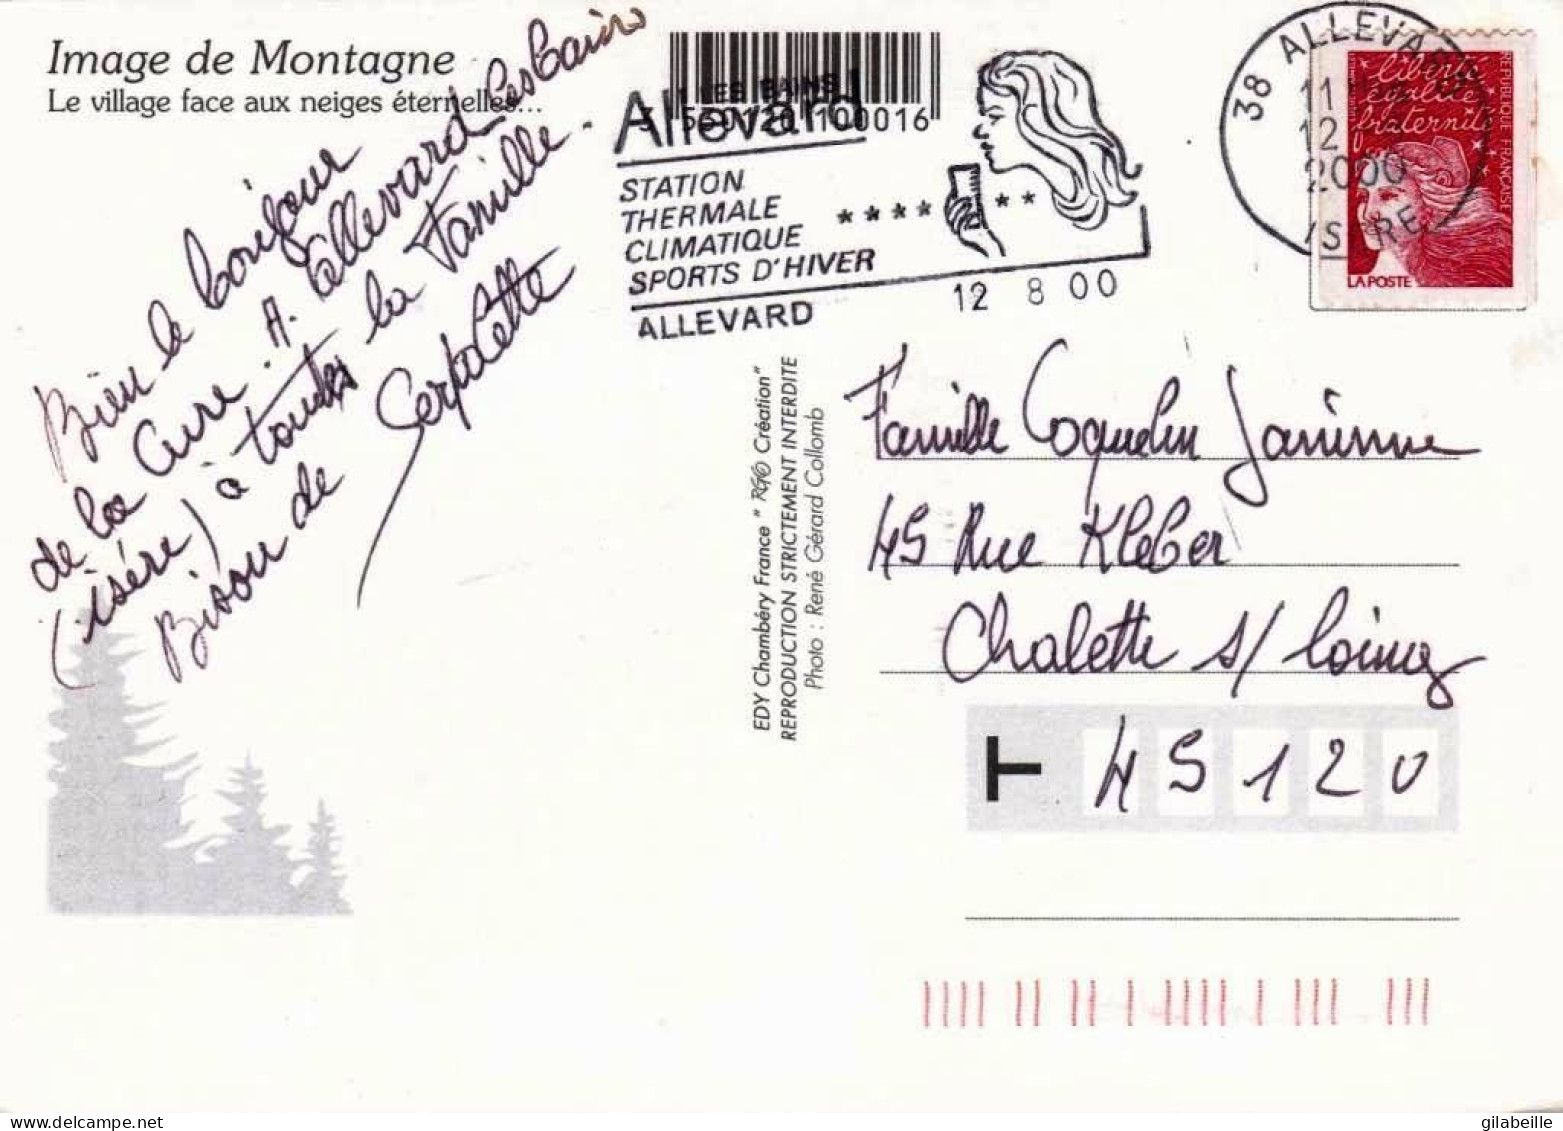 Image de Montagne
Le village face aux neiges éternelles...
Bien le bonjour
de la Cure. A. Allevard les bains
(isére) à toutes la Famille.
Bisou de Serpolette
3 560120 100016
LES BAINS
Allevard
STATION
THERMALE
CLIMATIQUE
SPORTS D'HIVER
ALLEVARD
12 8 00
38 ALLEVARD
11 H
12
2000
ISERE
liberté
égalité
fraternité
REPUBLIQUE FRANÇAISE
LA POSTE
EDY Chambéry France " Création"
REPRODUCTION STRICTEMENT INTERDITE
Photo : René Gérard Collomb
Famille Coquelin Jannine
45 Rue Kleber
Chalette s/ loing
T 45120
gilabeille